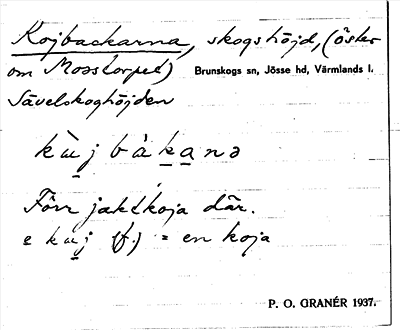 Kojbackarna, skogshöjd, (öster
om Mosstorpet) Brunskogs sn, Jösse hd, Värmlands l.
Sävelskoghöjden
kɯ̀j bàkanə
Förr jaktkoja där.
e kɯj (f.) = en koja
P. O. GRANÉR 1937.